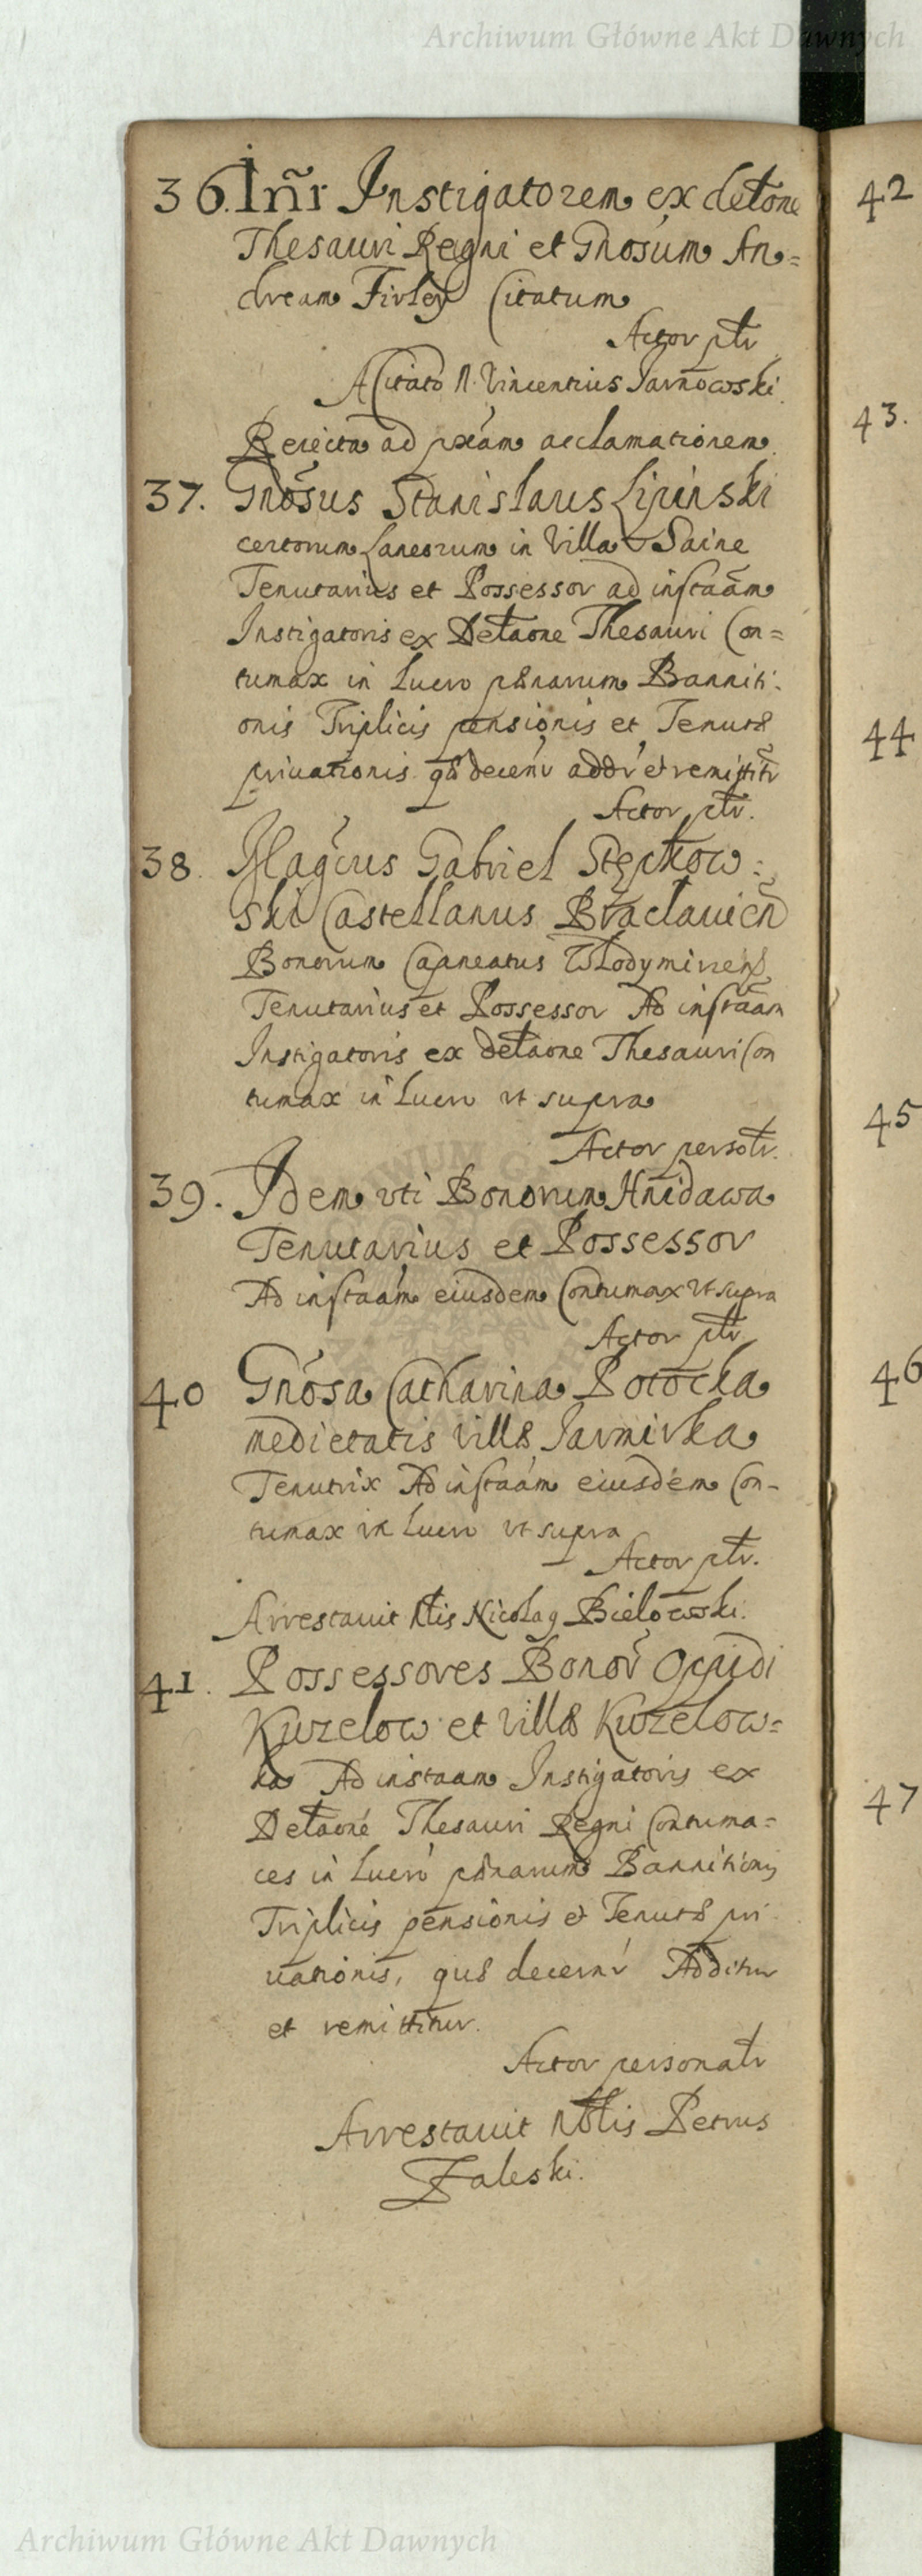 Archiwum Główne Akt Dawnych
36. Inr̃ Instigatorem ex detone
Thesauri Regni et Gnosum An=
dream Firley Citatum
Actor ptr
A Citato N. Vincentius Jarnowski
Reiecta ad pxãm acclamationem.
37. Gnõsus Stanislaus Lipinski
certorum Laneorum in Villa Saine
Tenutarius et Possessor ad instaãm
Instigatoris ex Delaone Thesauri Con=
tumax in Lucro pænarum Banniti-
onis Triplicis pensionis et Tenutæ
priuationis qæ decernr addr et remittitr
Actor ptr.
38. Magcus Gabriel Stępkow=
ski Castellanus Braclauieñ
Bonorum Capneatus Wlodymirrens
Tenutarius et Possessor Ad instaãm
Instigatoris ex delaone Thesauri Con
tumax in Lucro vt supra
Actor persoltr.
39. Idem vti Bonorum Hnidawa
Tenutarius et Possessor
Ad instaãm eiusdem Contumax vt supra
Actor ptr
40 Gnosa Catharina Potocka
medietatis Villæ Jarmirka
Tenutrix Ad instaãm eiusdem Con-
tumax in Lucro vt supra
Actor ptr.
Arrestauit Nlis Nicolaq Bielowski.
41. Possessores Bonor Oppidi
Kuzelow et Villæ Kuzelow=
ka Ad instaam Instigatoris ex
Delaone Thesauri Regni Contuma=
ces in Lucro pænarum Bannitionis
Triplicis pensionis et Tenutæ pri
uationis, quæ decernr Additur
et remittitur.
Actor personaltr
Arrestauit Nblis Petrus
Zaleski.
42
43.
44
45
46
47
Archiwum Główne Akt Dawnych